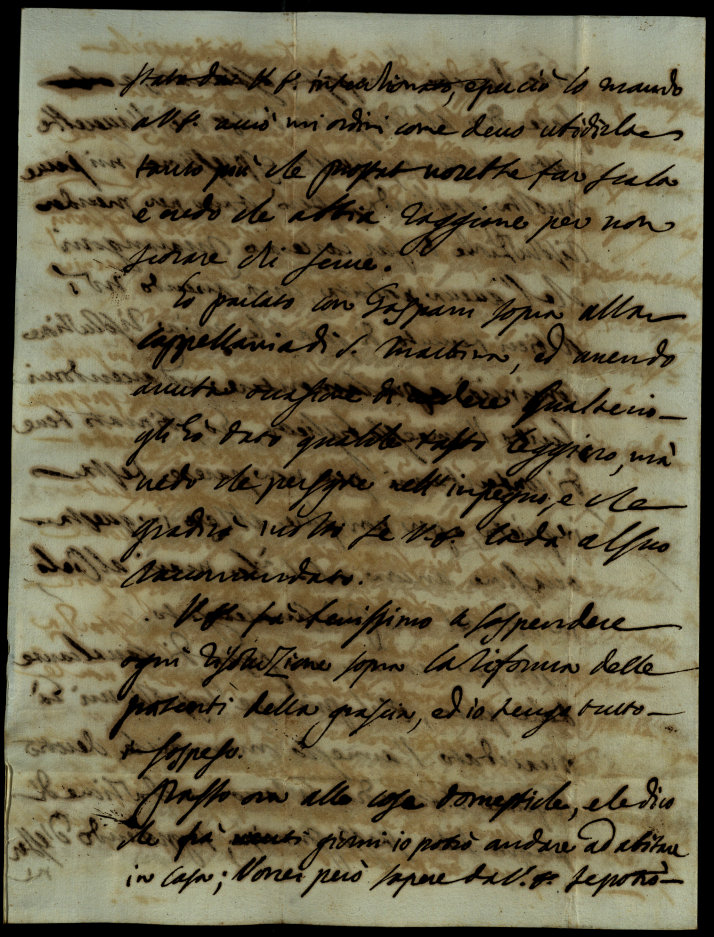 stato da V. S. intentionato, e perciò lo mando
a V. S. acciò mi ordini come devo ubidirla
tanto più che vorebbe far scala
e credo che abbia raggione per non
restare di fuori.
Ho parlato con Gaspani sopra alla
cappellania di S. Martina, ed havendo
avuta occasione di vedere Gualterio
gli ho dato qualche tasto leggiero, mà
vedo che persiste nell'impegno, e che
gradirà molto se V. S. la dà al suo
raccomandato.
V. S. fa benissimo a sospendere
ogni risoluzione sopra la riforma delle
patenti della grascia, ed io tengo tutto
sospeso.
Passo ora alle cose domestiche, e le dico
che frà giorni io potrò andare ad abitare
in casa; Vorrei però sapere da V. S. se potrò